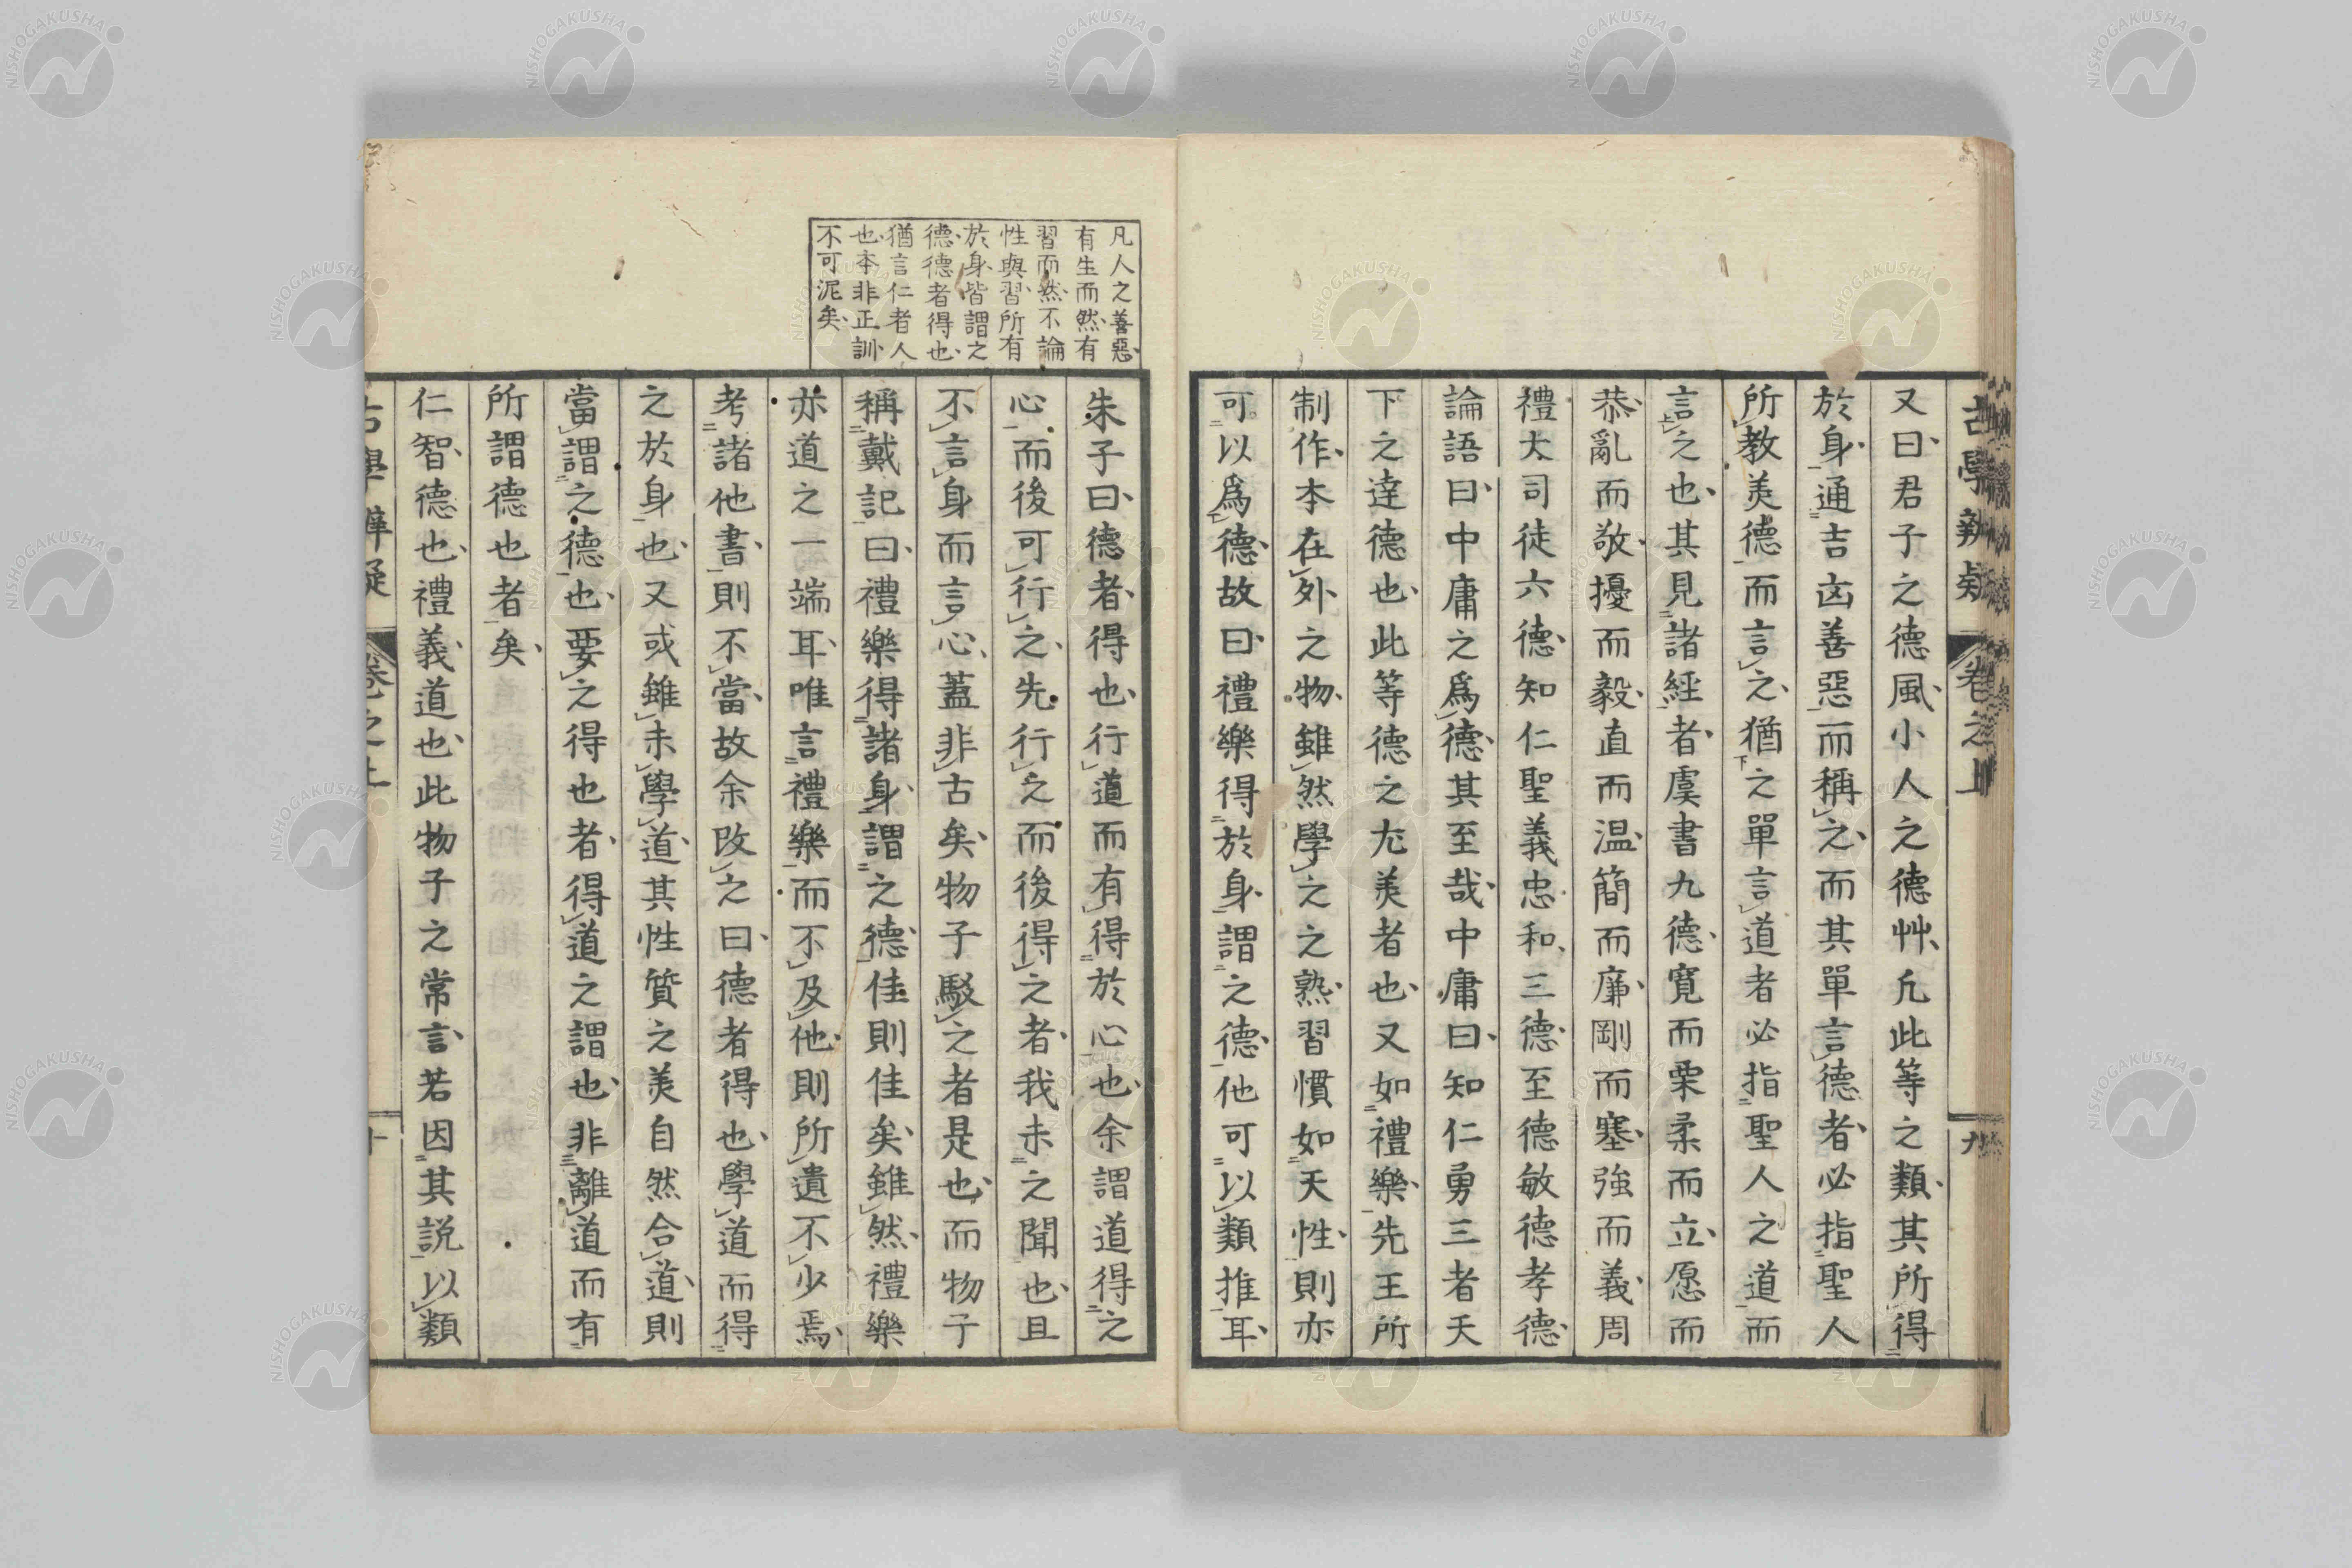 古學辨疑 卷之上 九
又曰君子之德風小人之德艸凡此等之類其所得
於身通吉凶善惡而稱之而其單言德者必指聖人
所教美德而言之猶之單言道者必指聖人之道而
言之也其見諸經者虞書九德寬而栗柔而立愿而
恭亂而敬擾而毅直而温簡而廉剛而塞強而義周
禮大司徒六德知仁聖義忠和三德至德敏德孝德
論語曰中庸之爲德其至哉中庸曰知仁勇三者天
下之達德也此等德之尤美者也又如禮樂先王所
制作本在外之物雖然學之之熟習慣如天性則亦
可以爲德故曰禮樂得於身謂之德他可以類推耳
凡人之善惡
有生而然有
習而然不論
性與習所有
於身皆謂之
德德者得也
猶言仁者人
也本非正訓
不可泥矣
朱子曰德者得也行道而有得於心也余謂道得之
心而後可行之先行之而後得之者我未之聞也且
不言身而言心蓋非古矣物子駁之者是也而物子
稱戴記曰禮樂得諸身謂之德佳則佳矣雖然禮樂
亦道之一端耳唯言禮樂而不及他則所遺不少焉
考諸他書則不當故余改之曰德者得也學道而得
之於身也又或雖未學道其性質之美自然合道則
當謂之德也要之得也者得道之謂也非離道而有
所謂德也者矣
仁智德也禮義道也此物子之常言若因其説以類
古學辨疑 卷之上 十
NISHOGAKUSHA